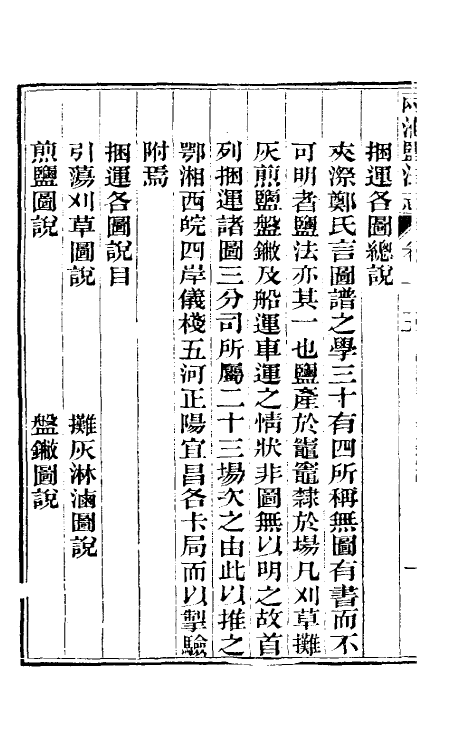 兩淮鹽法志
捆運各圖總說
夾漈鄭氏言圖譜之學三十有四所稱無圖有書而不
可明者鹽法亦其一也鹽產於竈竈隸於場凡刈草攤
灰煎鹽盤䥕及船運車運之情狀非圖無以明之故首
列捆運諸圖三分司所屬二十三場次之由此以推之
鄂湘西皖四岸儀棧五河正陽宜昌各卡局而以掣驗
附焉
捆運各圖說目
引蕩刈草圖說　攤灰淋滷圖說
煎鹽圖說　盤䥕圖說